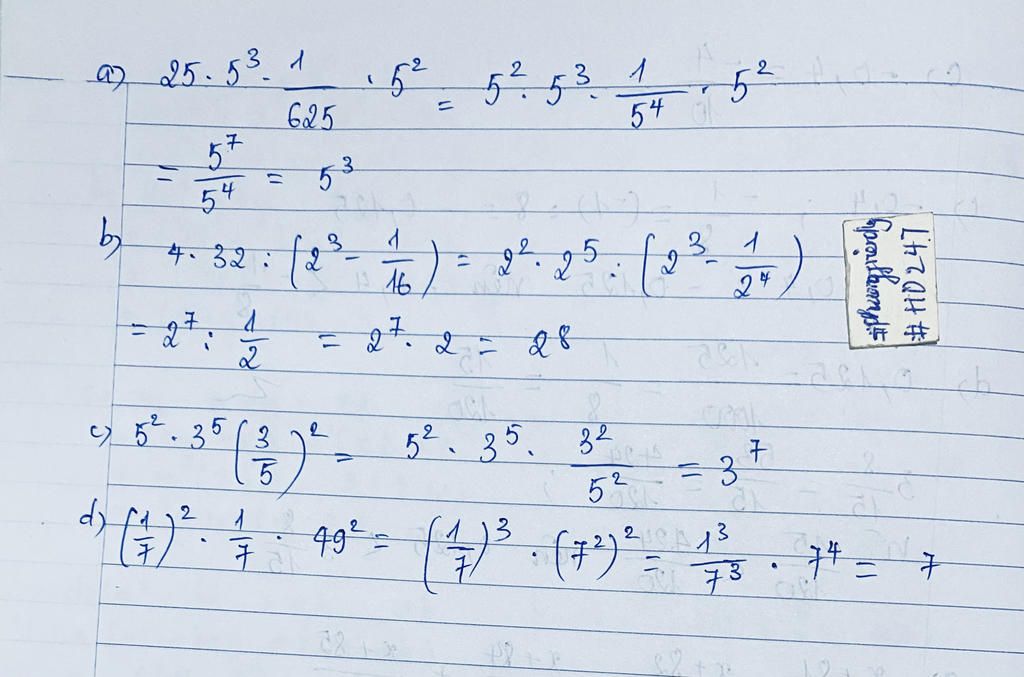 a) 25 · 5³ · 1/625 · 5² = 5² · 5³ · 1/5⁴ · 5²
= 5⁷/5⁴ = 5³
b) 4 · 32 : (2³ - 1/16) = 2² · 2⁵ : (2³ - 1/2⁴)
= 2⁷ : 1/2 = 2⁷ · 2 = 2⁸
c) 5² · 3⁵ (3/5)² = 5² · 3⁵ · 3²/5² = 3⁷
d) (1/7)² · 1/7 · 49² = (1/7)³ · (7²)² = 1³/7³ · 7⁴ = 7